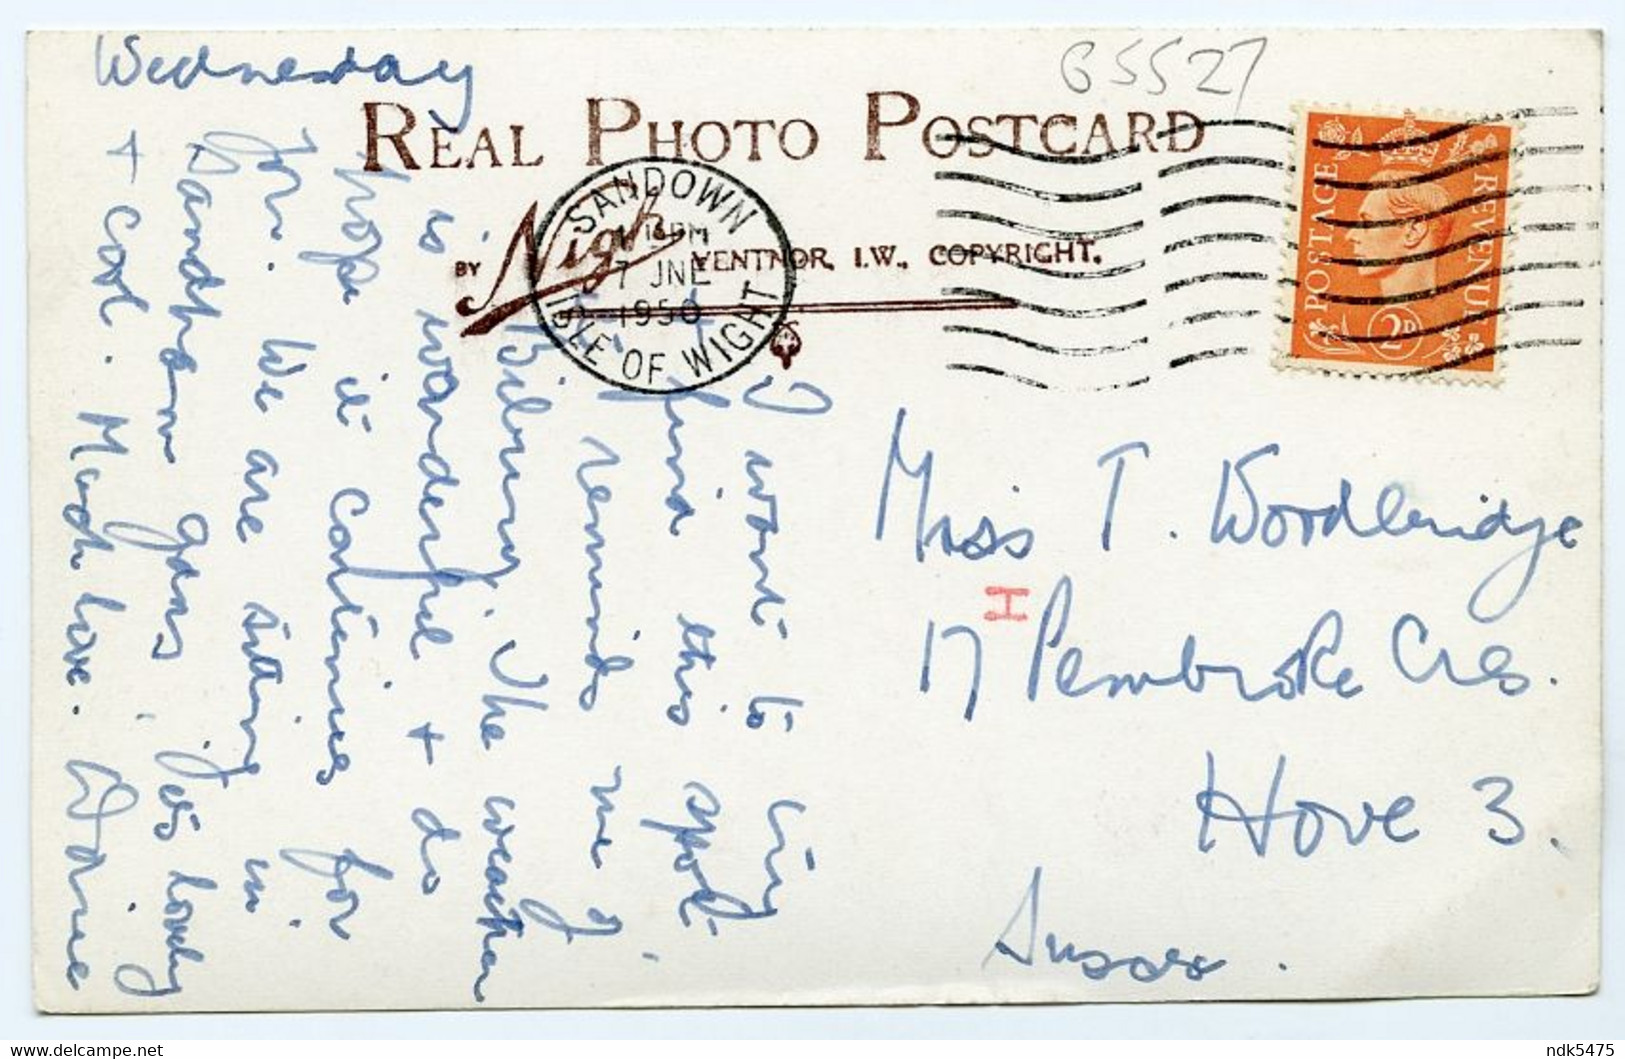 Wednesday
G5527
REAL PHOTO POSTCARD
BY Nigh VENTNOR, I.W. COPYRIGHT.
SANDOWN
PM
7 JNE
1950
ISLE OF WIGHT
POSTAGE REVENUE
2D
I want to try
& find this spot.
It reminds me of
The weather
is wonderful & do
hope it continues for
you. We are sitting in
Sandham gdns, its lovely
+ cool. Much love.
Miss T. Woodbridge
H
17 Pembroke Cres.
Hove 3.
Sussex.
ndk5475